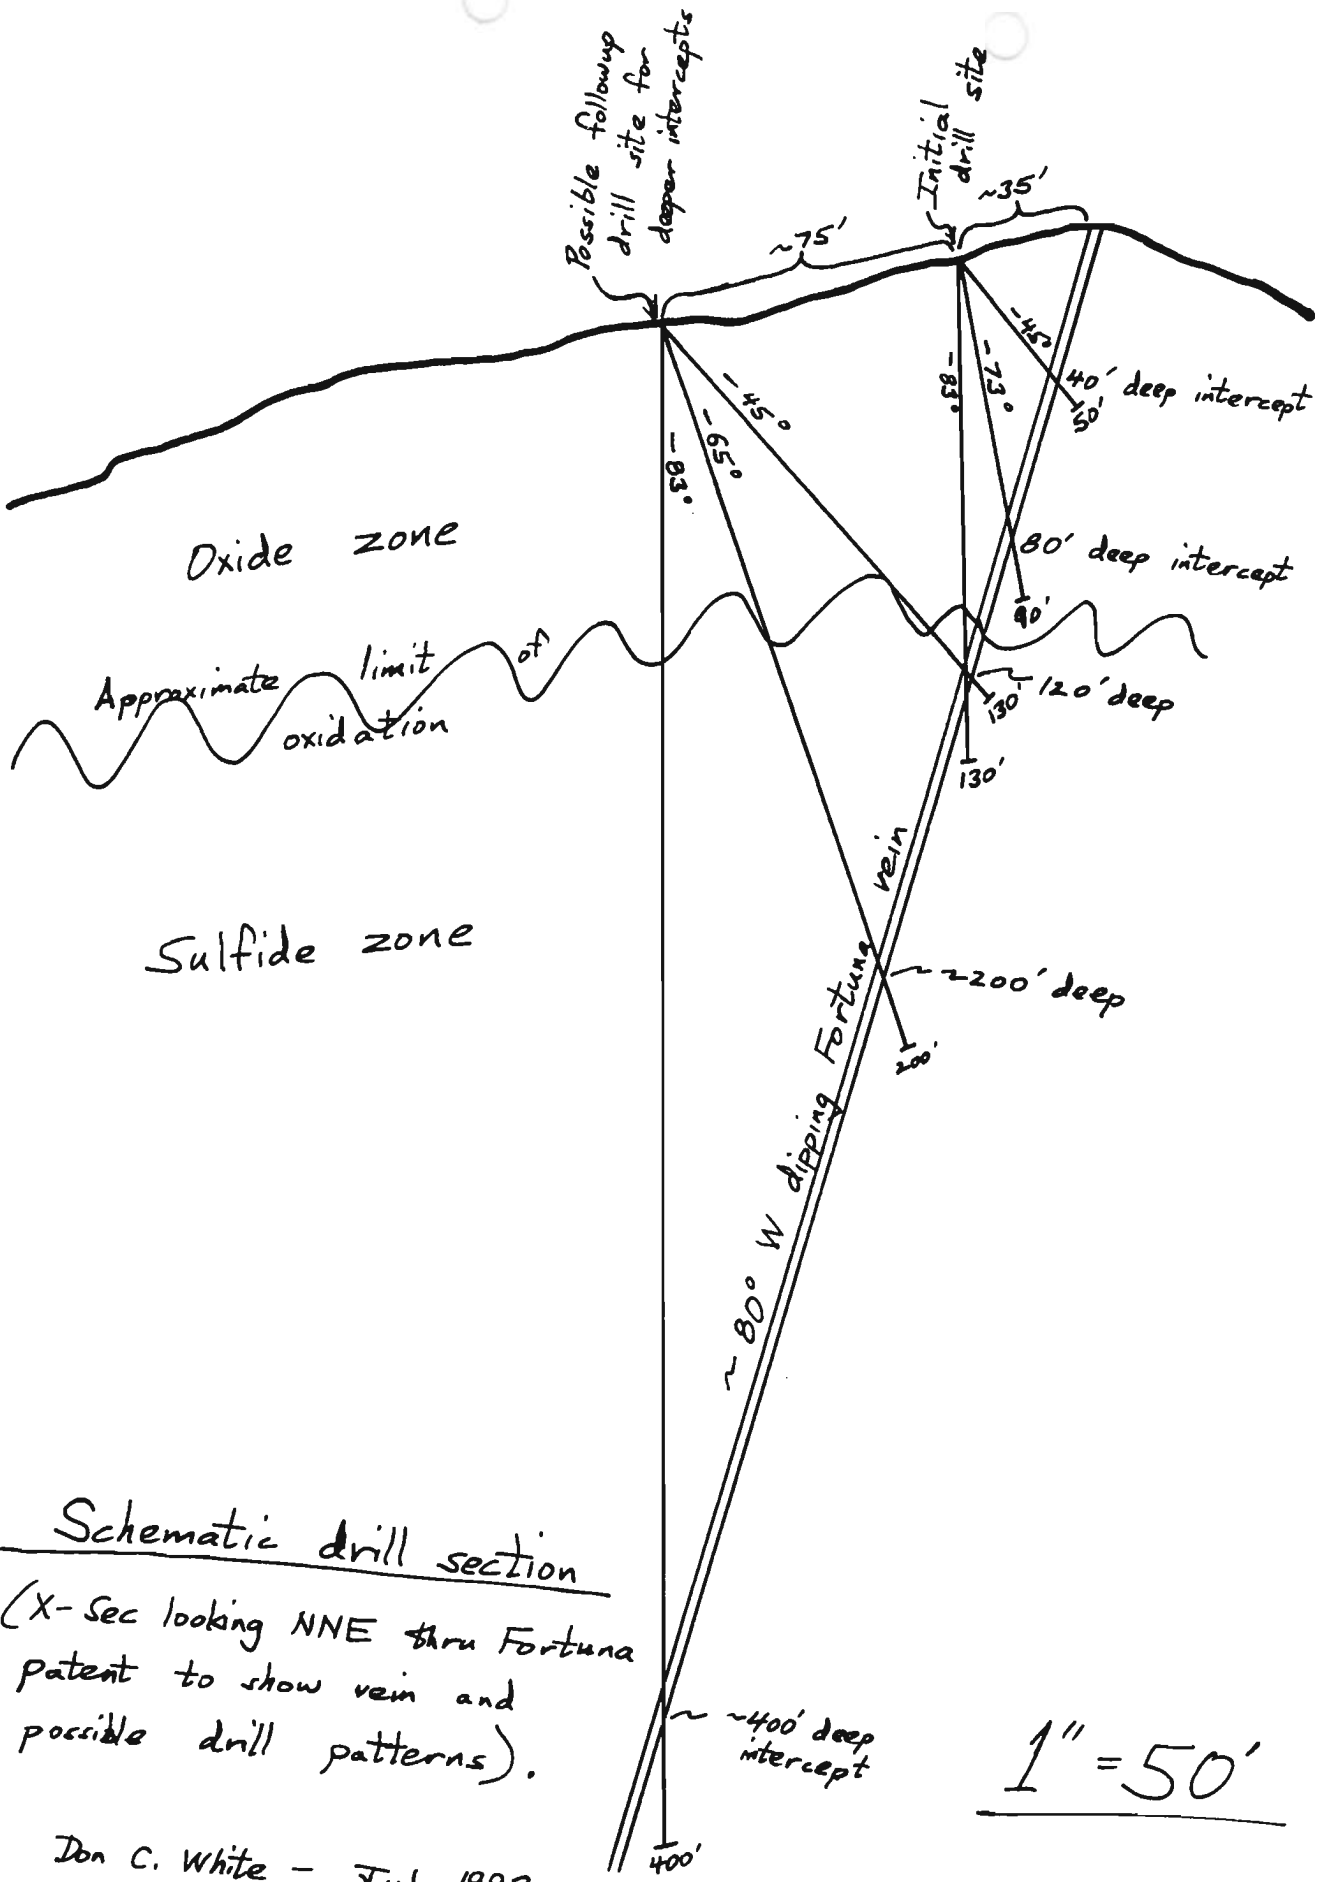 Possible followup
drill site for
deeper intercepts
Initial
drill site
~35'
~75'
-45°
-73°
-83°
40' deep intercept
50'
-45°
-65°
-83°
Oxide zone
80' deep intercept
90'
Approximate limit of
oxidation
~120' deep
130'
130'
vein
Sulfide zone
~200' deep
200'
~80° W dipping Fortuna
Schematic drill section
(X-Sec looking NNE thru Fortuna
patent to show vein and
possible drill patterns).
~400' deep
intercept
1" = 50'
400'
Don C. White -